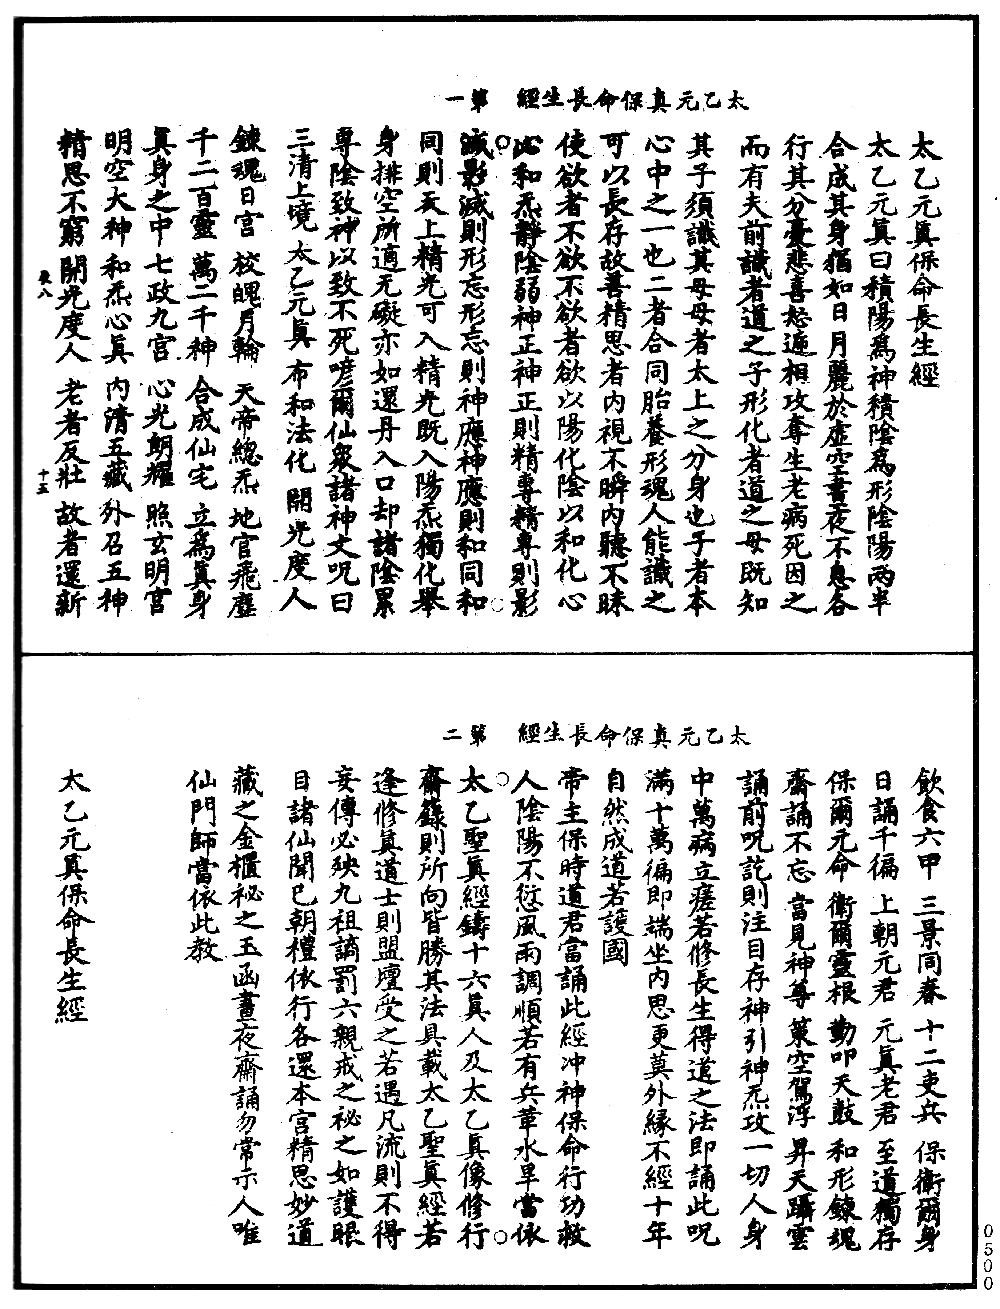 太乙元真保命長生經　第一
太乙元真保命長生經
太乙元真曰積陽爲神積陰爲形陰陽兩半
合成其身猶如日月麗於虛空晝夜不息各
行其分憂悲喜怒遞相攻奪生老病死因之
而有夫前識者道之子形化者道之母既知
其子須識其母母者太上之分身也子者本
心中之一也二者合同胎養形魂人能識之
可以長存故善精思者內視不瞬內聽不昧
使欲者不欲不欲者欲以陽化陰以和化心
心和炁靜陰弱神正神正則精專精專則影
滅影滅則形忘形忘則神應神應則和同和
同則天上精光可入精光既入陽炁獨化舉
身排空所適无礙亦如還丹入口却諸陰累
專陰致神以致不死嗟爾仙衆諸神文呪曰
三清上境 太乙元真 布和法化 開光度人
鍊魂日宮 校魄月輪 天帝總炁 地官飛塵
千二百靈 萬二千神 合成仙宅 立爲真身
真身之中 七政九宮 心光朗耀 照玄明宮
明空大神 和炁心真 內清五藏 外召五神
精思不窮 開光度人 老者反壯 故者還新
衣八 十五
太乙元真保命長生經　第二
飲食六甲 三景同春 十二吏兵 保衛爾身
日誦千徧 上朝元君 元真老君 至道獨存
保爾元命 衛爾靈根 勤叩天鼓 和形鍊魂
齋誦不忘 當見神尊 策空駕浮 昇天躡雲
誦前呪訖則注目存神引神炁攻一切人身
中萬病立瘥若修長生得道之法即誦此呪
滿十萬徧即端坐內思更莫外緣不經十年
自然成道若護國
帝主保時道君當誦此經冲神保命行功救
人陰陽不愆風雨調順若有兵革水旱當依
太乙聖真經鑄十六真人及太乙真像修行
齋籙則所向皆勝其法具載太乙聖真經若
逢修真道士則盟壇受之若遇凡流則不得
妄傳必殃九祖謫罰六親戒之祕之如護眼
目諸仙聞已朝禮依行各還本宮精思妙道
藏之金櫃祕之玉函晝夜齋誦勿常示人唯
仙門師當依此教
太乙元真保命長生經
0500